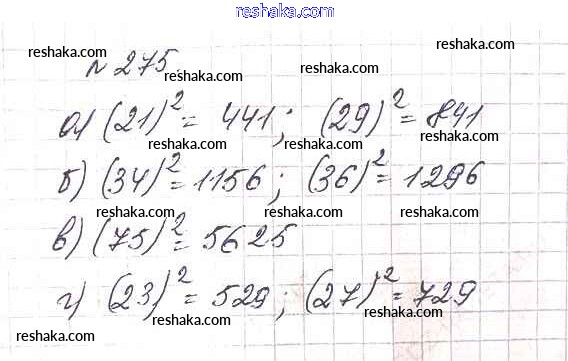 reshaka.com
reshaka.com reshaka.com
№ 275.
reshaka.com
а) (21)² = 441; (29)² = 841
reshaka.com reshaka.com
б) (34)² = 1156; (36)² = 1296
reshaka.com reshaka.com
в) (75)² = 5625
reshaka.com reshaka.com
г) (23)² = 529; (27)² = 729
reshaka.com reshaka.com reshaka.com